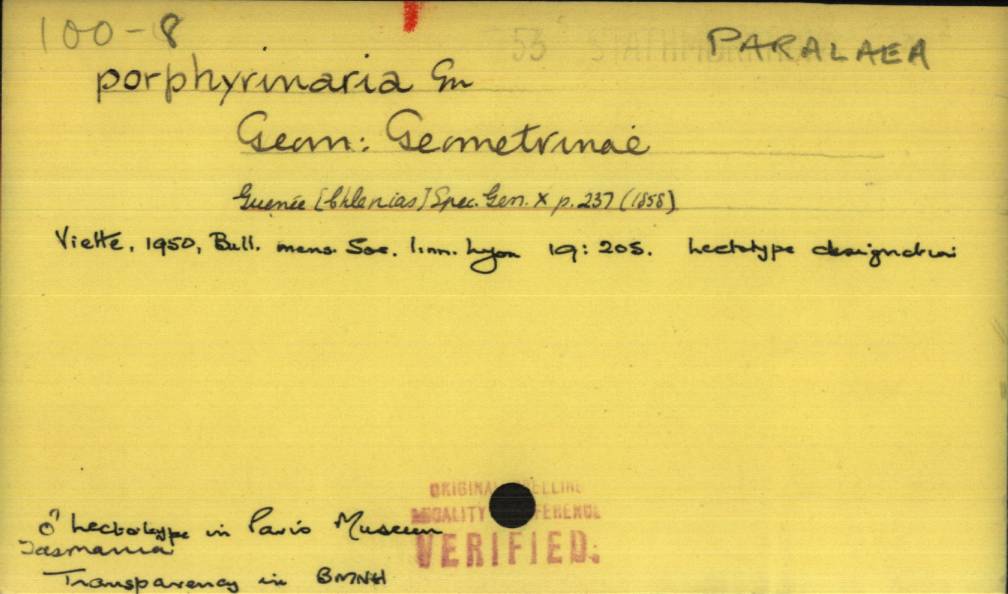 100-8 PARALAEA
53
porphyrinaria Gn
Geom: Geometrinae
Guenée [Chlenias] Spec. Gen. X p. 237 (1858)
Viette, 1950, Bull. mens. Soc. linn. Lyon 19: 205. Lectotype designation
ORIGINAL
♂ Lectotype in Paris Museum
Tasmania
VERIFIED.
Transparency in BMNH